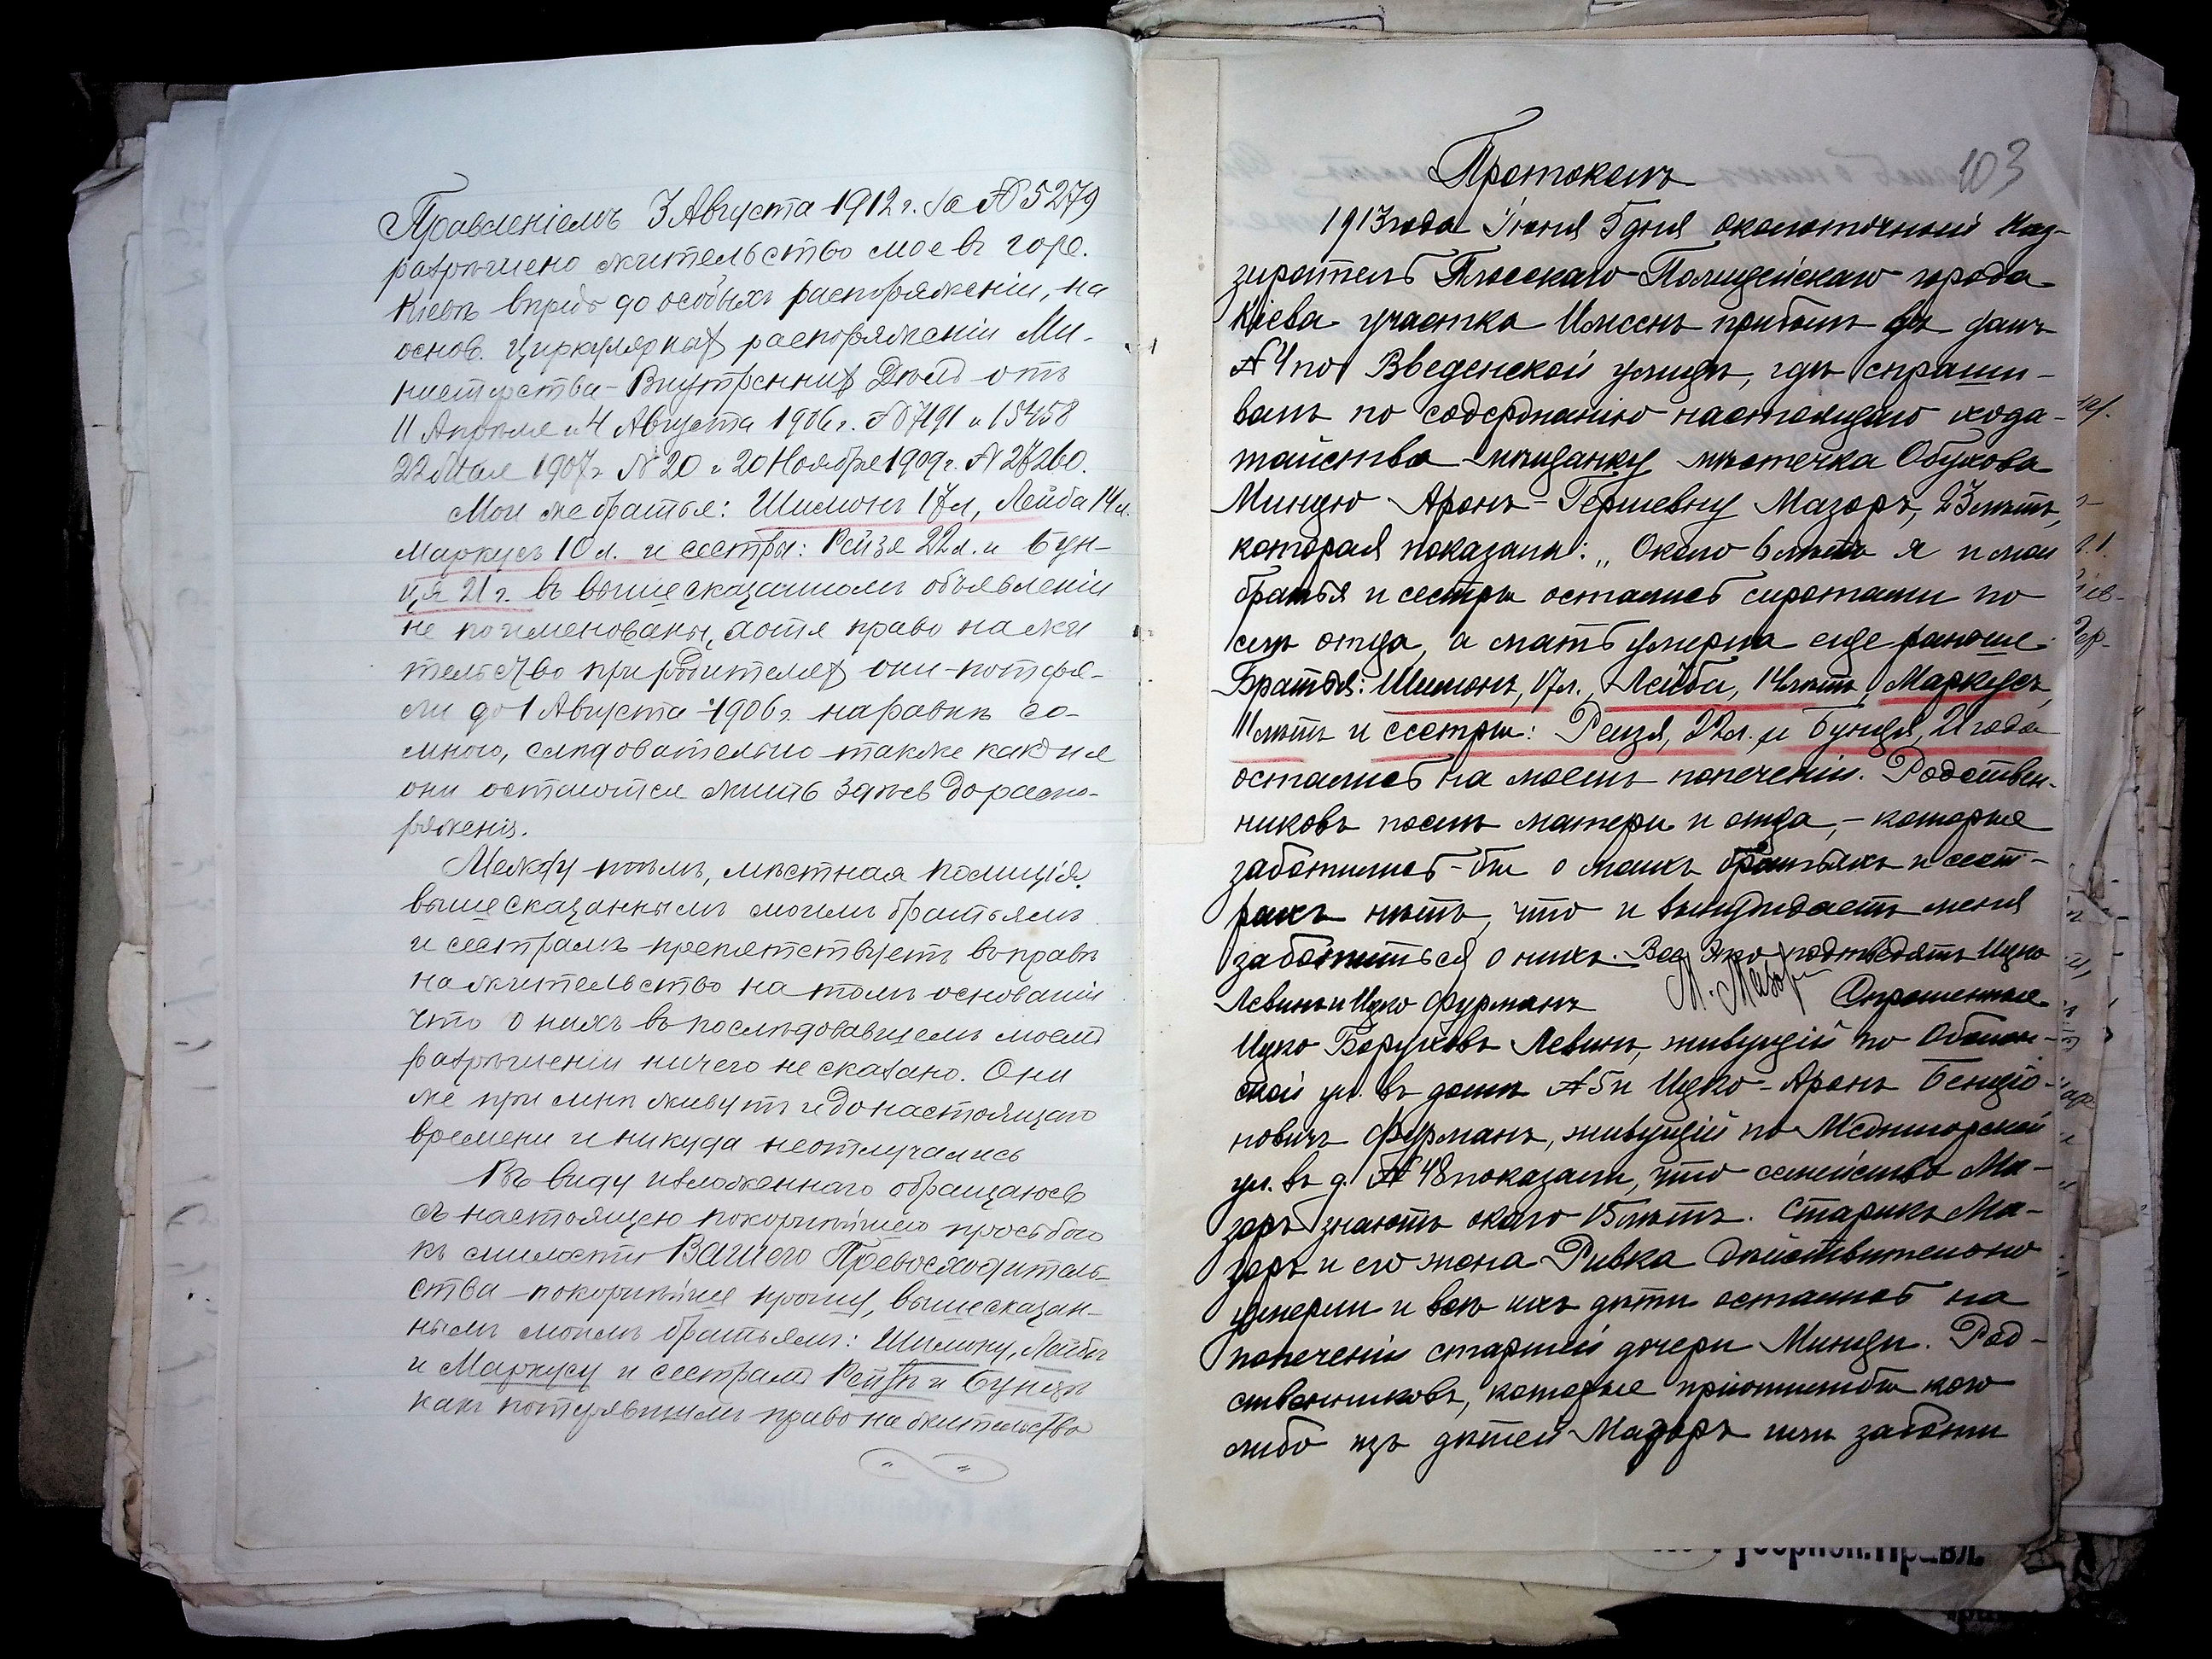 Правленіемъ 3 Августа 1912 г. за № 5279
разрѣшено жительство мое въ горо.
Кіевѣ впредь до особыхъ распоряженіи, на
основ. циркулярных распоряженіи Ми-
нистерства Внутренних Дѣлъ отъ
11 Апрѣля и 4 Августа 1906 г. № 7191 и 15458
22 Мая 1907 г. № 20 и 20 Ноября 1909 г. № 27260.
Мои же братья: Шимонъ 17 л, Лейба 14 л.
Маркусъ 10 л. и сестры: Рейзя 22 л. и Бун-
ця 21 г. въ вышесказанномъ объявленіи
не поименованы, хотя право на жи
тельство при родителях они потеря-
ли до 1 Августа 1906 г. наравнѣ со
мною, слѣдовательно также какъ и я
они остаются жить здѣсь до распо-
ряженія.
Между тѣмъ, мѣстная полиція
вышесказаннымъ моимъ братьямъ
и сестрамъ препятствуетъ въ правѣ
на жительство на томъ основаніи
что о нихъ въ послѣдовавшемъ моемъ
разрѣшеніи ничего не сказано. Они
же при мнѣ живутъ и до настоящаго
времени и никуда не отлучались
Въ виду изложеннаго обращаюсь
съ настоящею покорнѣйшею просьбою
къ милости Вашего Превосходитель-
ства покорнѣйше прошу, вышесказан-
нымъ моимъ братьямъ: Шимону, Лейбѣ
и Маркусу и сестрамъ Рейзѣ и Бунцѣ
какъ потерявшимъ право на жительство
103
Протоколъ
1913 года Іюня 5 дня околоточный Над-
зиратель Плосскаго Полицейскаго города
Кіева участка прибылъ въ домъ
№ 4 по Введенской улицѣ, гдѣ спраши-
валъ по содержанію настоящаго хода-
тайства мѣщанку мѣстечка Обухова
Минцю Аронъ-Гершевну Мазоръ, 23 лѣтъ,
которая показала: „Около 6 лѣтъ я и мои
братья и сестры остались сиротами по
слѣ отца, а мать умерла еще раньше.
Братья: Шимонъ, 17 л., Лейба, 14 лѣтъ, Маркусъ,
11 лѣтъ и сестры: Рейзя, 22 л. и Бунця, 21 года
остались на моемъ попеченіи. Родствен-
никовъ послѣ матери и отца, - которые
заботились-бы о моихъ братьяхъ и сест-
рахъ нѣтъ, что и вынуждаетъ меня
заботиться о нихъ. Все это подтвердятъ Ицко
Левинъ и Ицко Фурманъ М. Мазоръ Спрошенные
Ицко Боруховъ Левинъ, живущій по Оболон-
ской ул. въ домѣ № 5 и Ицко-Аронъ Бенціо-
новичъ Фурманъ, живущій по Межигорской
ул. въ д. № 48 показали, что семейство Ма-
зоръ знаютъ около 15 лѣтъ. Старикъ Ма-
зоръ и его жена Ривка дѣйствительно
умерли и всѣ ихъ дѣти остались на
попеченіи старшей дочери Минци. Род-
ственниковъ, которые пріютили бы кого
либо изъ дѣтей Мазоръ или заботи